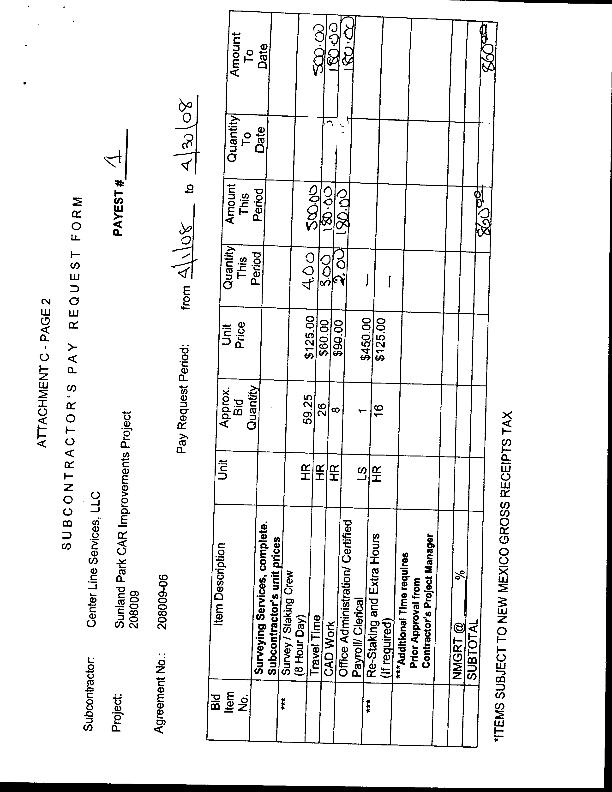 ATTACHMENT C - PAGE 2
SUBCONTRACTOR'S PAY REQUEST FORM
Subcontractor: Center Line Services, LLC
Project: Sunland Park CAR Improvements Project PAYEST # 1
208009
Agreement No.: 208009-06
Pay Request Period: from 4/1/08 to 4/30/08
Bid Item No. Item Description Unit Approx. Bid Quantity Unit Price Quantity This Period Amount This Period Quantity To Date Amount To Date
Surveying Services, complete.
Subcontractor's unit prices
*** Survey / Staking Crew
(8 Hour Day) HR 59.25 $125.00 4.00 500.00 500.00
Travel Time HR 26 $60.00 3.00 180.00 180.00
CAD Work HR 8 $90.00 2.00 180.00 180.00
Office Administration/ Certified
Payroll/ Clerical LS 1 $450.00 —
*** Re-Staking and Extra Hours
(if required) HR 16 $125.00 —
***Additional Time requires
Prior Approval from
Contractor's Project Manager
NMGRT @ %
SUBTOTAL 860.00 860.00
*ITEMS SUBJECT TO NEW MEXICO GROSS RECEIPTS TAX